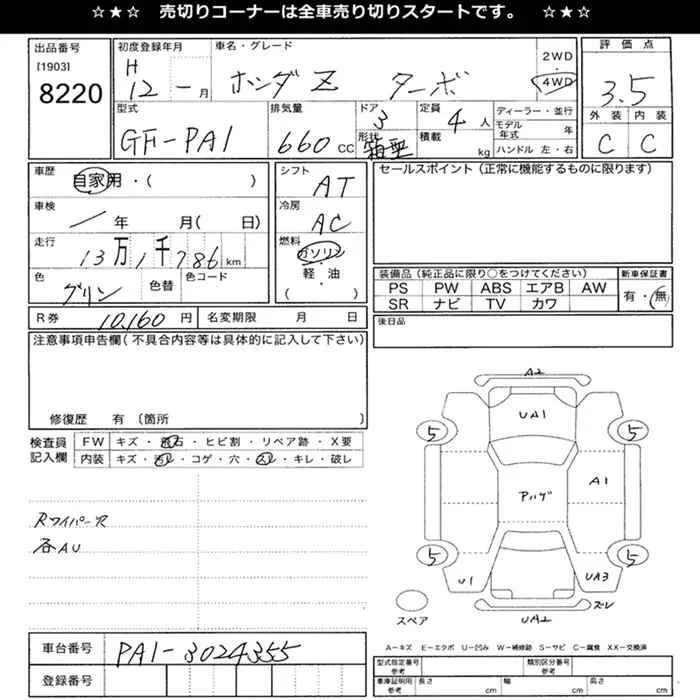 ☆★☆ 売切りコーナーは全車売り切りスタートです。 ☆★☆
出品番号
[1903]
8220
初度登録年月
H
12 - 月
車名・グレード
ホンダ Z ターボ
2WD
・
4WD
評価点
3.5
外装 内装
C C
型式
GF-PA1
排気量
660 cc
ドア
3
形状
箱型
定員
4 人
積載
kg
ディーラー・並行
モデル
年式 年
ハンドル 左・右
車歴
自家用・( )
車検
/ 年 月( 日)
走行
13万1千786 km
色
グリン
色替
色コード
シフト
AT
冷房
AC
燃料
ガソリン
軽・油
( )
セールスポイント(正常に機能するものに限ります)
装備品(純正品に限り○をつけてください)
PS PW ABS エアB AW
SR ナビ TV カワ
新車保証書
有・無
R券 10,160 円
名変期限 月 日
後日品
注意事項申告欄(不具合内容等は具体的に記入して下さい)
修復歴 有〔箇所
検査員
記入欄
FW キズ・飛石・ヒビ割・リペア跡・X要
内装 キズ・汚レ・コゲ・穴・スレ・キレ・破レ
Rワイパー穴
各AU
A2
UA1
5 5
アハゲ
A1
5 5
U1
UA3
スレ
UA2
スペア
A-キズ E-エクボ U-凹み W-補修跡 S-サビ C-腐食 XX-交換済
車台番号 PA1-3024355
登録番号
型式指定番号
参考
類別区分番号
参考
車庫証明用
参考
長さ cm
幅 cm
高さ cm